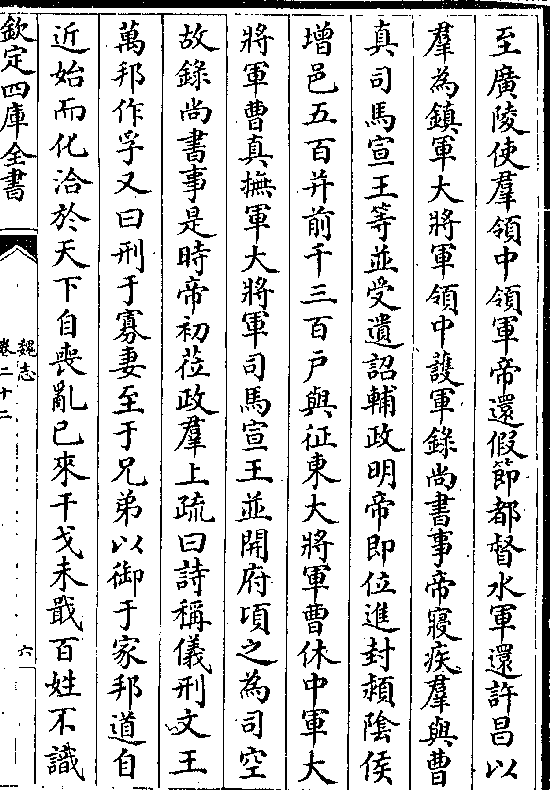 至廣陵使羣領中領軍帝還假節都督水軍還許昌以
羣為鎮軍大將軍領中護軍錄尚書事帝寢疾羣與曹
真司馬宣王等並受遺詔輔政明帝即位進封潁隂侯
增邑五百并前千三百戸與征東大將軍曹休中軍大
將軍曹真撫軍大將軍司馬宣王並開府頃之為司空
故錄尚書事是時帝初莅政羣上疏曰詩稱儀刑文王
萬邦作孚又曰刑于寡妻至于兄弟以御于家邦道自
近始而化洽於天下自喪亂已來干戈未戢百姓不識
欽定四庫全書
魏志
卷二十二
六